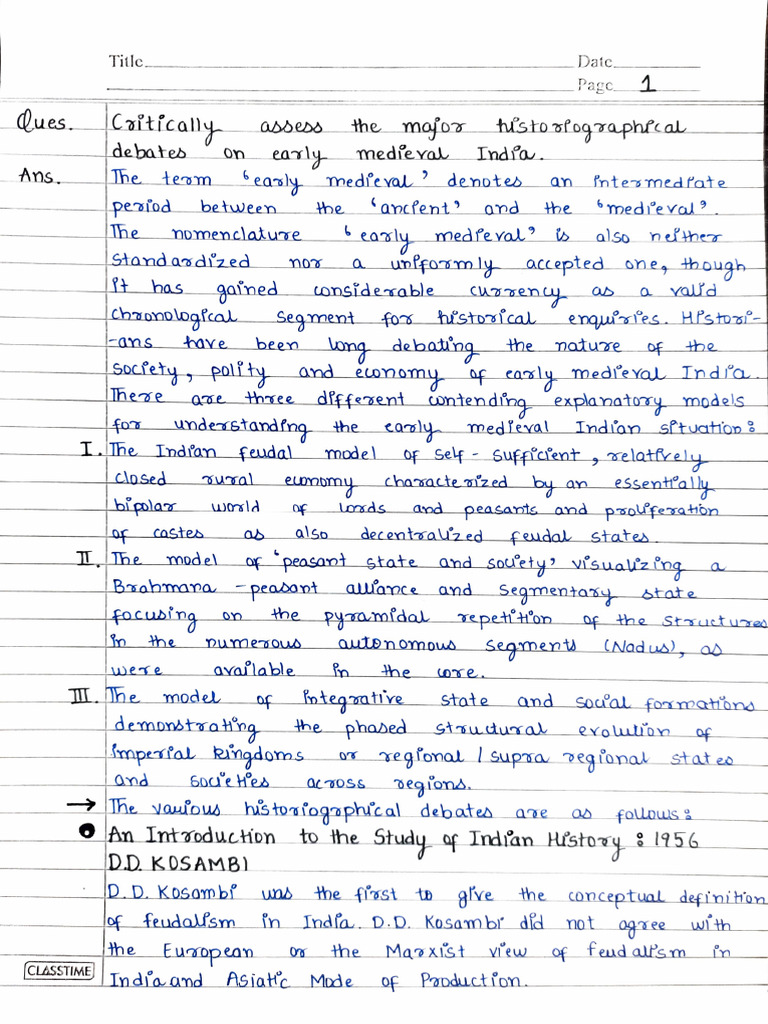 Title
Date
Page 1
Ques. Critically assess the major historiographical
debates on early medieval India.
Ans. The term 'early medieval' denotes an intermediate
period between the 'ancient' and the 'medieval'.
The nomenclature 'early medieval' is also neither
standardized nor a uniformly accepted one, though
it has gained considerable currency as a valid
chronological segment for historical enquiries. Histori-
-ans have been long debating the nature of the
society, polity and economy of early medieval India.
There are three different contending explanatory models
for understanding the early medieval Indian situation:
I. The Indian feudal model of self-sufficient, relatively
closed rural economy characterized by an essentially
bipolar world of lords and peasants and proliferation
of castes as also decentralized feudal states.
II. The model of 'peasant state and society' visualizing a
Brahmana-peasant alliance and segmentary state
focusing on the pyramidal repetition of the structures
in the numerous autonomous segments (Nadus), as
were available in the core.
III. The model of integrative state and social formations
demonstrating the phased structural evolution of
imperial kingdoms or regional/supra regional states
and societies across regions.
→ The various historiographical debates are as follows:
● An Introduction to the Study of Indian History: 1956
D.D. KOSAMBI
D.D. Kosambi was the first to give the conceptual definition
of feudalism in India. D.D. Kosambi did not agree with
the European or the Marxist view of feudalism in
India and Asiatic Mode of Production.
CLASSTIME